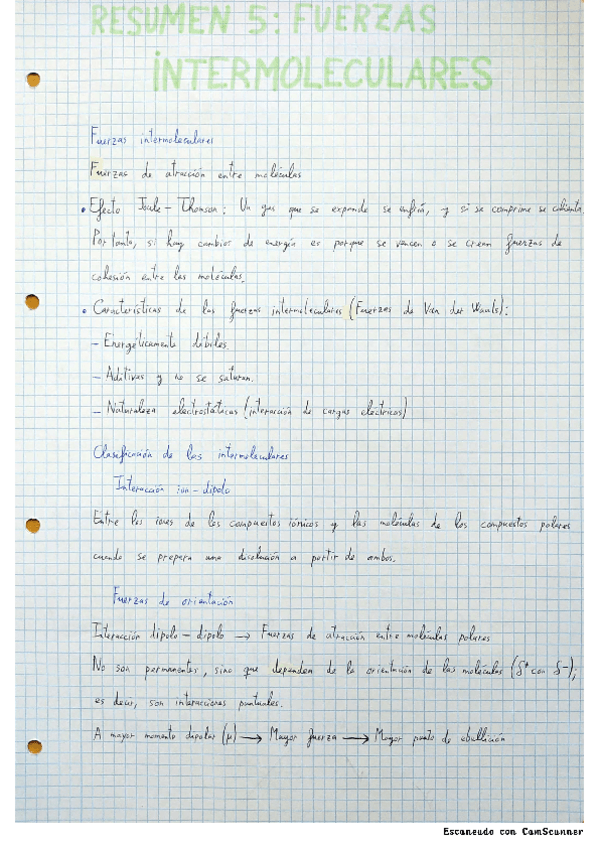 RESUMEN 5: FUERZAS
INTERMOLECULARES
Fuerzas intermoleculares
Fuerzas de atracción entre moléculas
• Efecto Joule-Thomson: Un gas que se expande se enfría, y si se comprime se calienta.
Por tanto, si hay cambios de energía es porque se vencen o se crean fuerzas de
cohesión entre las moléculas.
• Características de las fuerzas intermoleculares (Fuerzas de Van der Waals):
- Energéticamente débiles
- Aditivas y no se saturan.
- Naturaleza electrostáticas (interacción de cargas eléctricas)
Clasificación de las intermoleculares
Interacción ion-dipolo
Entre los iones de los compuestos iónicos y las moléculas de los compuestos polares
cuando se prepara una disolución a partir de ambos.
Fuerzas de orientación
Interacción dipolo-dipolo → Fuerzas de atracción entre moléculas polares
No son permanentes, sino que dependen de la orientación de las moléculas (δ+ con δ-);
es decir, son interacciones puntuales.
A mayor momento dipolar (μ) → Mayor fuerza → Mayor punto de ebullición
Escaneado con CamScanner